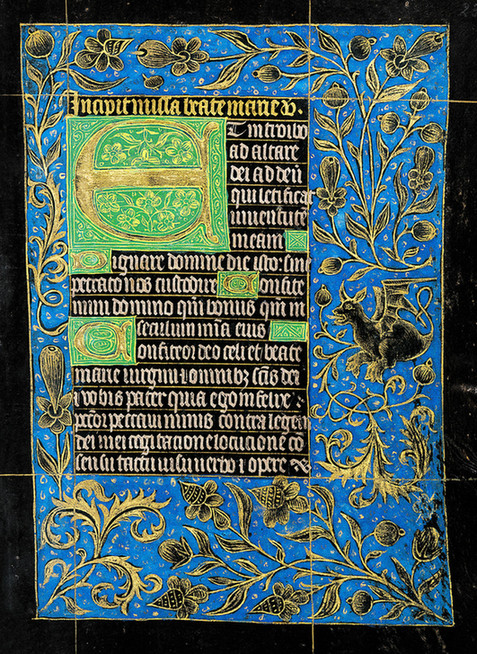 Incipit missa beate marie v.
Et introibo
ad altare
dei ad deū
qui letificat
iuventutē
meam
Dignare domine die isto: sine
peccato nos custodire Confite
mini domino qm̄ bonus qm̄ in
seculum mīa eius
Confiteor deo celi et beate
marie virgini ⁊ omnibꝫ scīs dei
⁊ vobis pater quia ego miser
pctōr peccavi nimis contra legem
dei mei cogitatione locutione cō
sensu tactu visu verbo ⁊ opere